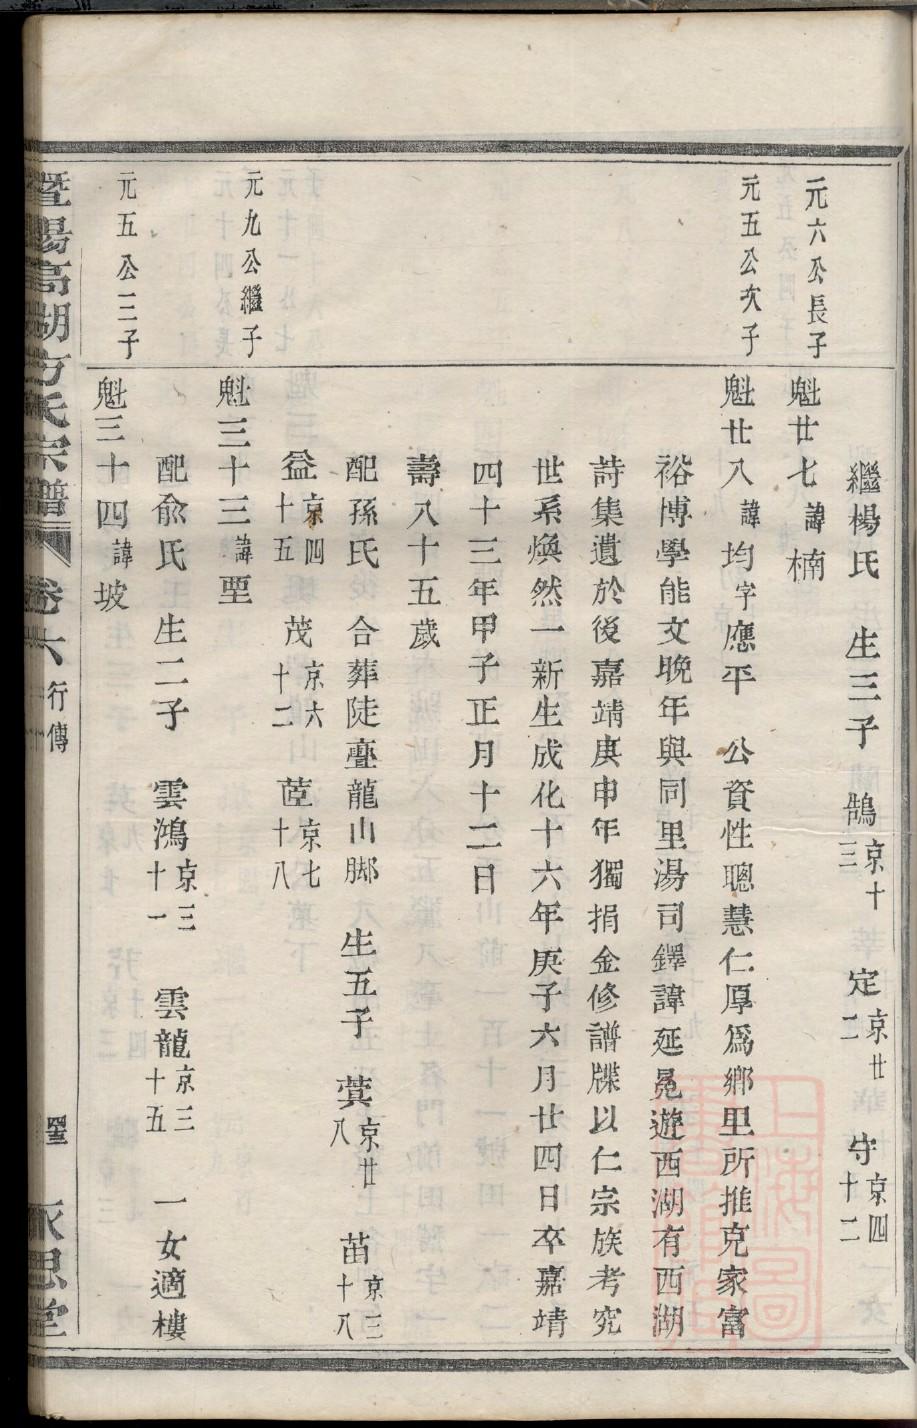 繼楊氏 生三子 鵠京十三 定京廿二 守京四十二
元六公長子 魁廿七諱楠
元五公次子 魁廿八諱均字應平 公資性聰慧仁厚爲鄉里所推克家富
裕博學能文晚年與同里湯司鐸諱延冕遊西湖有西湖
詩集遺於後嘉靖庚申年獨捐金修譜牒以仁宗族考究
世系煥然一新生成化十六年庚子六月廿四日卒嘉靖
四十三年甲子正月十二日
壽八十五歲
配孫氏 合葬陡亹龍山腳 生五子 蓂京廿八 苗京三十八
益京四十五 茂京六十二 荎京七十八
元九公繼子 魁三十三諱垔
配俞氏 生二子 雲鴻京三十一 雲龍京三十五 一女適樓
元五公三子 魁三十四諱坡
暨陽高湖方氏宗譜 卷六 行傳 永思堂